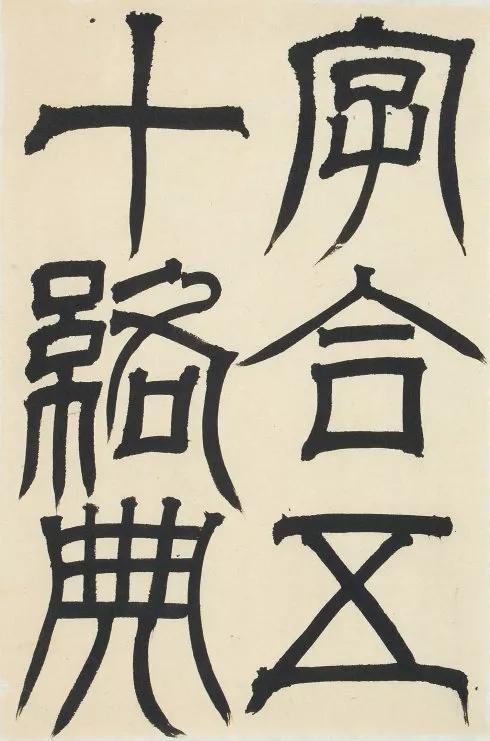 字合五
十絡典